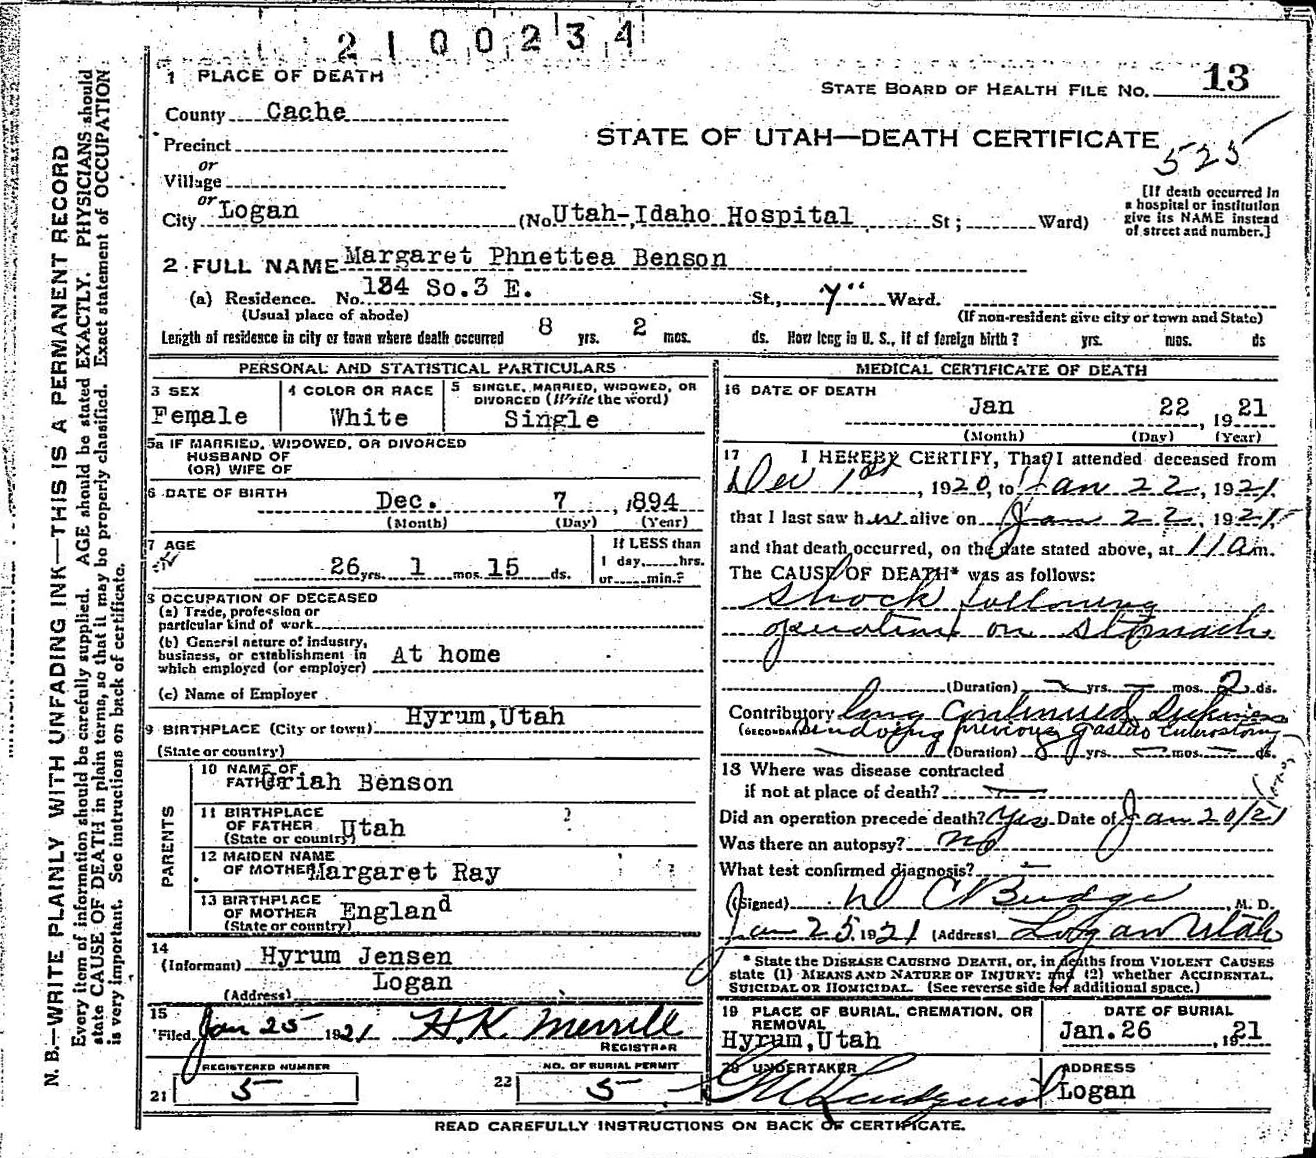 2100234
1 PLACE OF DEATH
STATE BOARD OF HEALTH FILE NO. 13
County Cache
Precinct
STATE OF UTAH—DEATH CERTIFICATE
525
or
Village
or
City Logan (No Utah-Idaho Hospital St; Ward)
[If death occurred in
a hospital or institution
give its NAME instead
of street and number.]
2 FULL NAME Margaret Phnettea Benson
(a) Residence. No. 134 So.3 E. St., 7" Ward.
(Usual place of abode) (If non-resident give city or town and State)
Length of residence in city or town where death occurred 8 yrs. 2 mos. ds. How long in U. S., if of foreign birth? yrs. mos. ds
PERSONAL AND STATISTICAL PARTICULARS
3 SEX
Female
4 COLOR OR RACE
White
5 SINGLE, MARRIED, WIDOWED, OR
DIVORCED (Write the word)
Single
5a IF MARRIED, WIDOWED, OR DIVORCED
HUSBAND OF
(OR) WIFE OF
6 DATE OF BIRTH Dec. 7, 1894
(Month) (Day) (Year)
7 AGE
26 yrs. 1 mos. 15 ds.
If LESS than
1 day, hrs.
or min.?
8 OCCUPATION OF DECEASED
(a) Trade, profession or
particular kind of work
(b) General nature of industry,
business, or establishment in
which employed (or employer) At home
(c) Name of Employer
9 BIRTHPLACE (City or town) Hyrum, Utah
(State or country)
PARENTS
10 NAME OF
FATHER Uriah Benson
11 BIRTHPLACE
OF FATHER Utah
(State or country)
12 MAIDEN NAME
OF MOTHER Margaret Ray
13 BIRTHPLACE
OF MOTHER England
(State or country)
14
(Informant) Hyrum Jensen
(Address) Logan
15
Filed Jan 25 1921 H.K. Merrill
REGISTRAR
REGISTERED NUMBER
21 5
NO. OF BURIAL PERMIT
22 5
MEDICAL CERTIFICATE OF DEATH
16 DATE OF DEATH
Jan 22, 1921
(Month) (Day) (Year)
17 I HEREBY CERTIFY, That I attended deceased from
Dec 1st, 1920, to Jan 22, 1921
that I last saw her alive on Jan 22, 1921
and that death occurred, on the date stated above, at 11 a m.
The CAUSE OF DEATH* was as follows:
Shock following
operation on stomach
(Duration) yrs. mos. 2 ds.
Contributory long continued sickness
(SECONDARY) previous gastro enterostomy
(Duration) yrs. mos. ds.
18 Where was disease contracted
if not at place of death?
Did an operation precede death? Yes Date of Jan 20/21
Was there an autopsy? no
What test confirmed diagnosis?
(Signed) D C Budge, M. D.
Jan 25, 1921 (Address) Logan Utah
* State the DISEASE CAUSING DEATH, or, in deaths from VIOLENT CAUSES
state (1) MEANS AND NATURE OF INJURY; and (2) whether ACCIDENTAL,
SUICIDAL OR HOMICIDAL. (See reverse side for additional space.)
19 PLACE OF BURIAL, CREMATION, OR
REMOVAL
Hyrum, Utah
DATE OF BURIAL
Jan. 26, 1921
20 UNDERTAKER
ADDRESS
Logan
READ CAREFULLY INSTRUCTIONS ON BACK OF CERTIFICATE.
N. B.—WRITE PLAINLY WITH UNFADING INK—THIS IS A PERMANENT RECORD
Every item of information should be carefully supplied. AGE should be stated EXACTLY. PHYSICIANS should
state CAUSE OF DEATH in plain terms, so that it may be properly classified. Exact statement of OCCUPATION
is very important. See instructions on back of certificate.